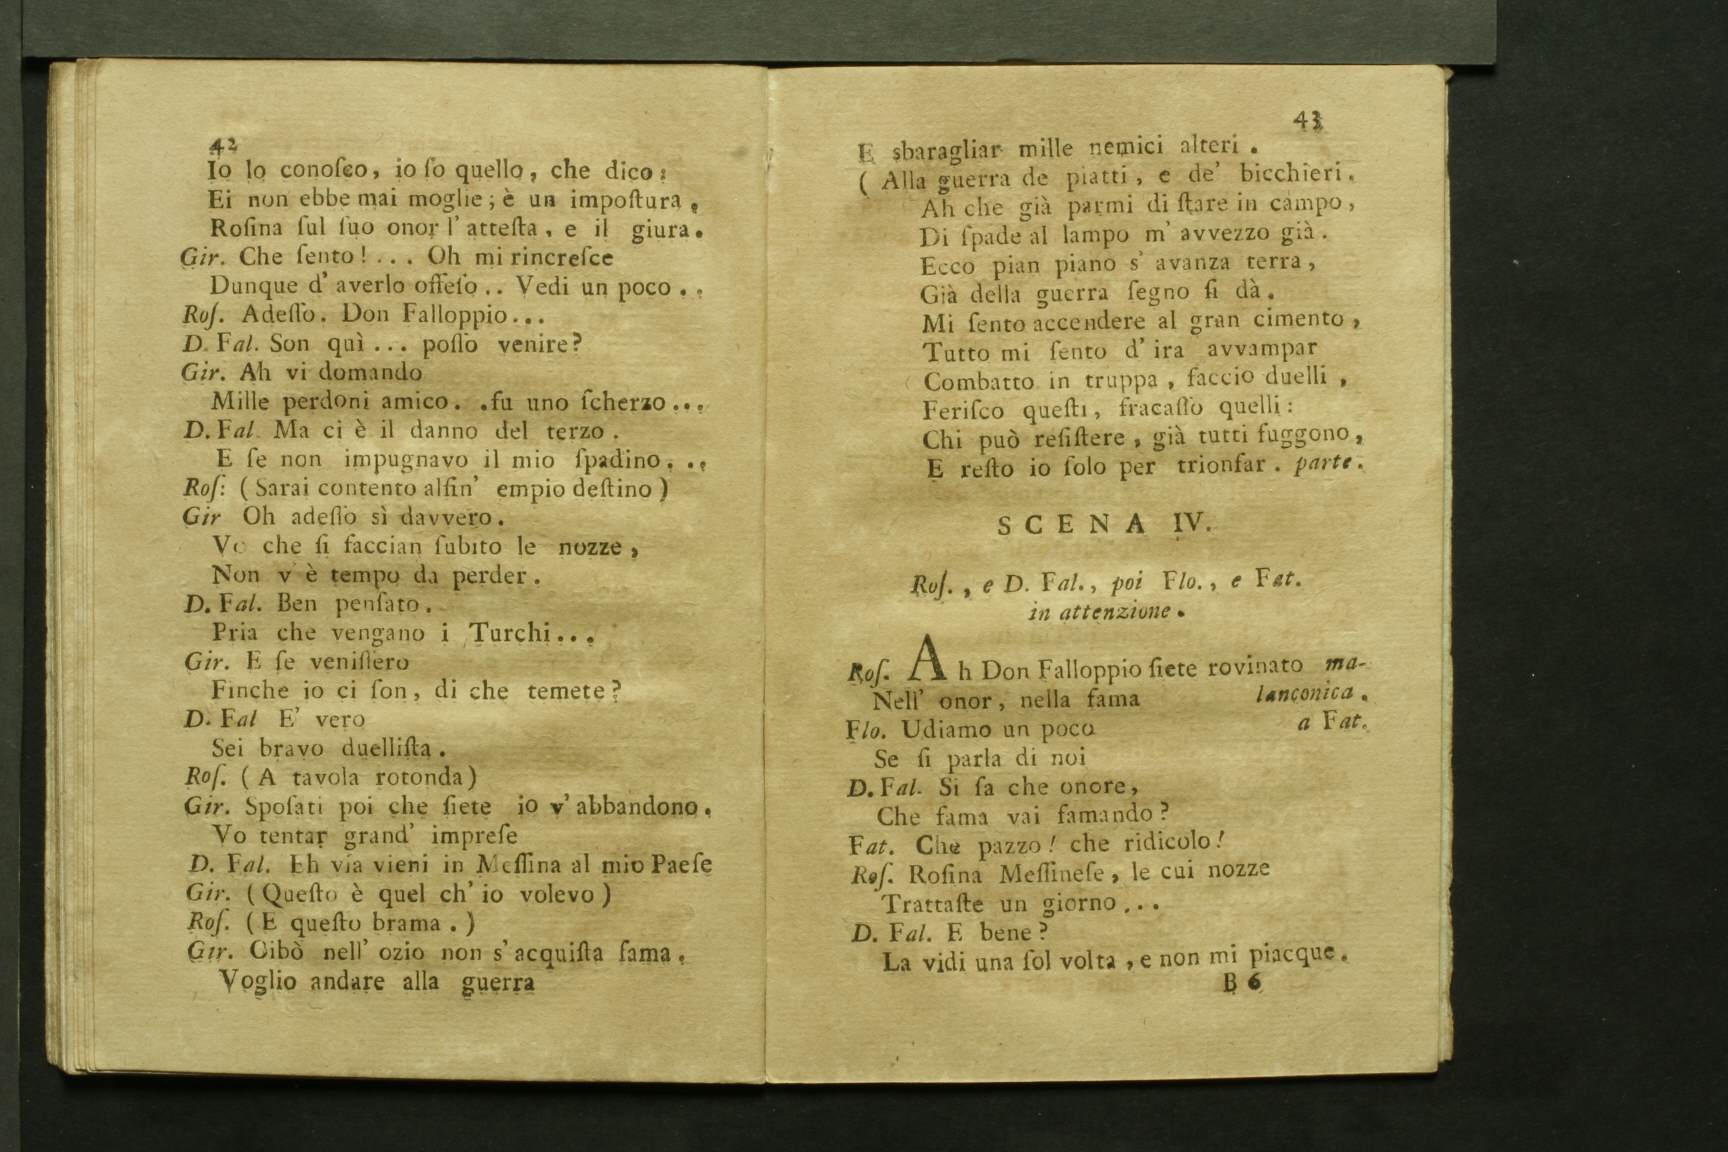 42
Io lo conoſco, io ſo quello, che dico:
Ei non ebbe mai moglie; è un impoſtura,
Roſina ſul ſuo onor l' atteſta, e il giura.
Gir. Che ſento! ... Oh mi rincreſce
Dunque d' averlo offeſo .. Vedi un poco ..
Roſ. Adeſſo. Don Falloppio...
D. Fal. Son quì ... poſſo venire?
Gir. Ah vi domando
Mille perdoni amico. .fu uno ſcherzo...
D. Fal. Ma ci è il danno del terzo.
E ſe non impugnavo il mio ſpadino...
Roſ: (Sarai contento alfin' empio deſtino)
Gir Oh adeſſo sì davvero.
Vo che ſi faccian ſubito le nozze,
Non v è tempo da perder.
D. Fal. Ben penſato.
Pria che vengano i Turchi...
Gir. E ſe veniſſero
Finche io ci ſon, di che temete?
D. Fal E' vero
Sei bravo duelliſta.
Roſ. (A tavola rotonda)
Gir. Spoſati poi che ſiete io v' abbandono.
Vo tentar grand' impreſe
D. Fal. Eh via vieni in Meſſina al mio Paeſe
Gir. (Queſto è quel ch' io volevo)
Roſ. (E queſto brama.)
Gir. Oibò nell' ozio non s' acquiſta fama.
Voglio andare alla guerra
43
E sbaragliar mille nemici alteri.
(Alla guerra de piatti, e de' bicchieri.
Ah che già parmi di ſtare in campo,
Di ſpade al lampo m' avvezzo già.
Ecco pian piano s' avanza terra,
Già della guerra ſegno ſi dà.
Mi ſento accendere al gran cimento,
Tutto mi ſento d' ira avvampar
Combatto in truppa, faccio duelli,
Feriſco queſti, fracaſſo quelli:
Chi può reſiſtere, già tutti fuggono,
E reſto io ſolo per trionfar. parte.
SCENA IV.
Roſ., e D. Fal., poi Flo., e Fat.
in attenzione.
Roſ. Ah Don Falloppio ſiete rovinato ma-
Nell' onor, nella fama lanconica.
Flo. Udiamo un poco a Fat.
Se ſi parla di noi
D. Fal. Si ſa che onore,
Che fama vai famando?
Fat. Che pazzo! che ridicolo!
Roſ. Roſina Meſſineſe, le cui nozze
Trattaſte un giorno...
D. Fal. E bene?
La vidi una ſol volta, e non mi piacque.
B 6